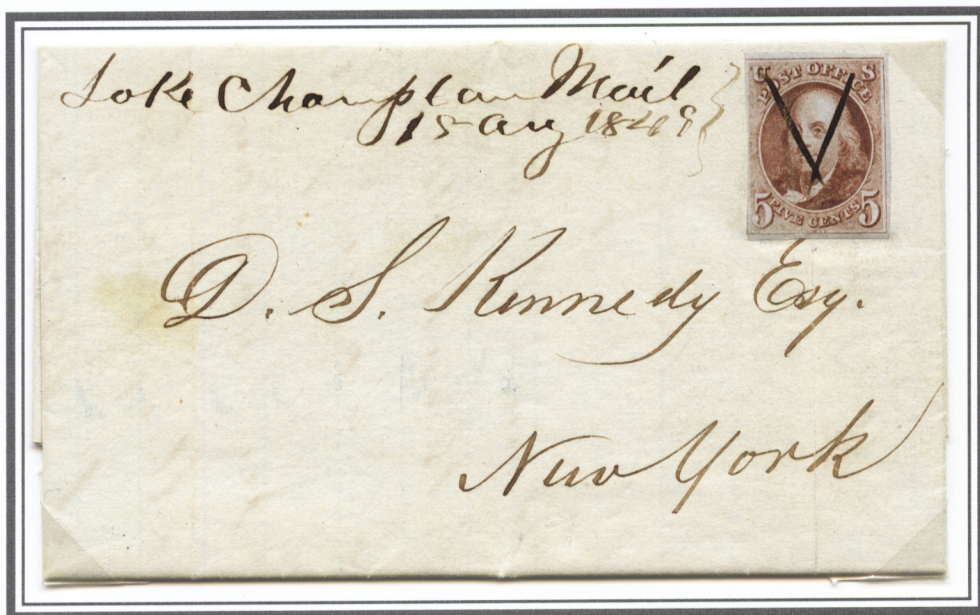 Lake Champlain Mail
15 Aug 1849
U S
POST OFFICE
5 FIVE CENTS 5
D. S. Kennedy Esq.
New York